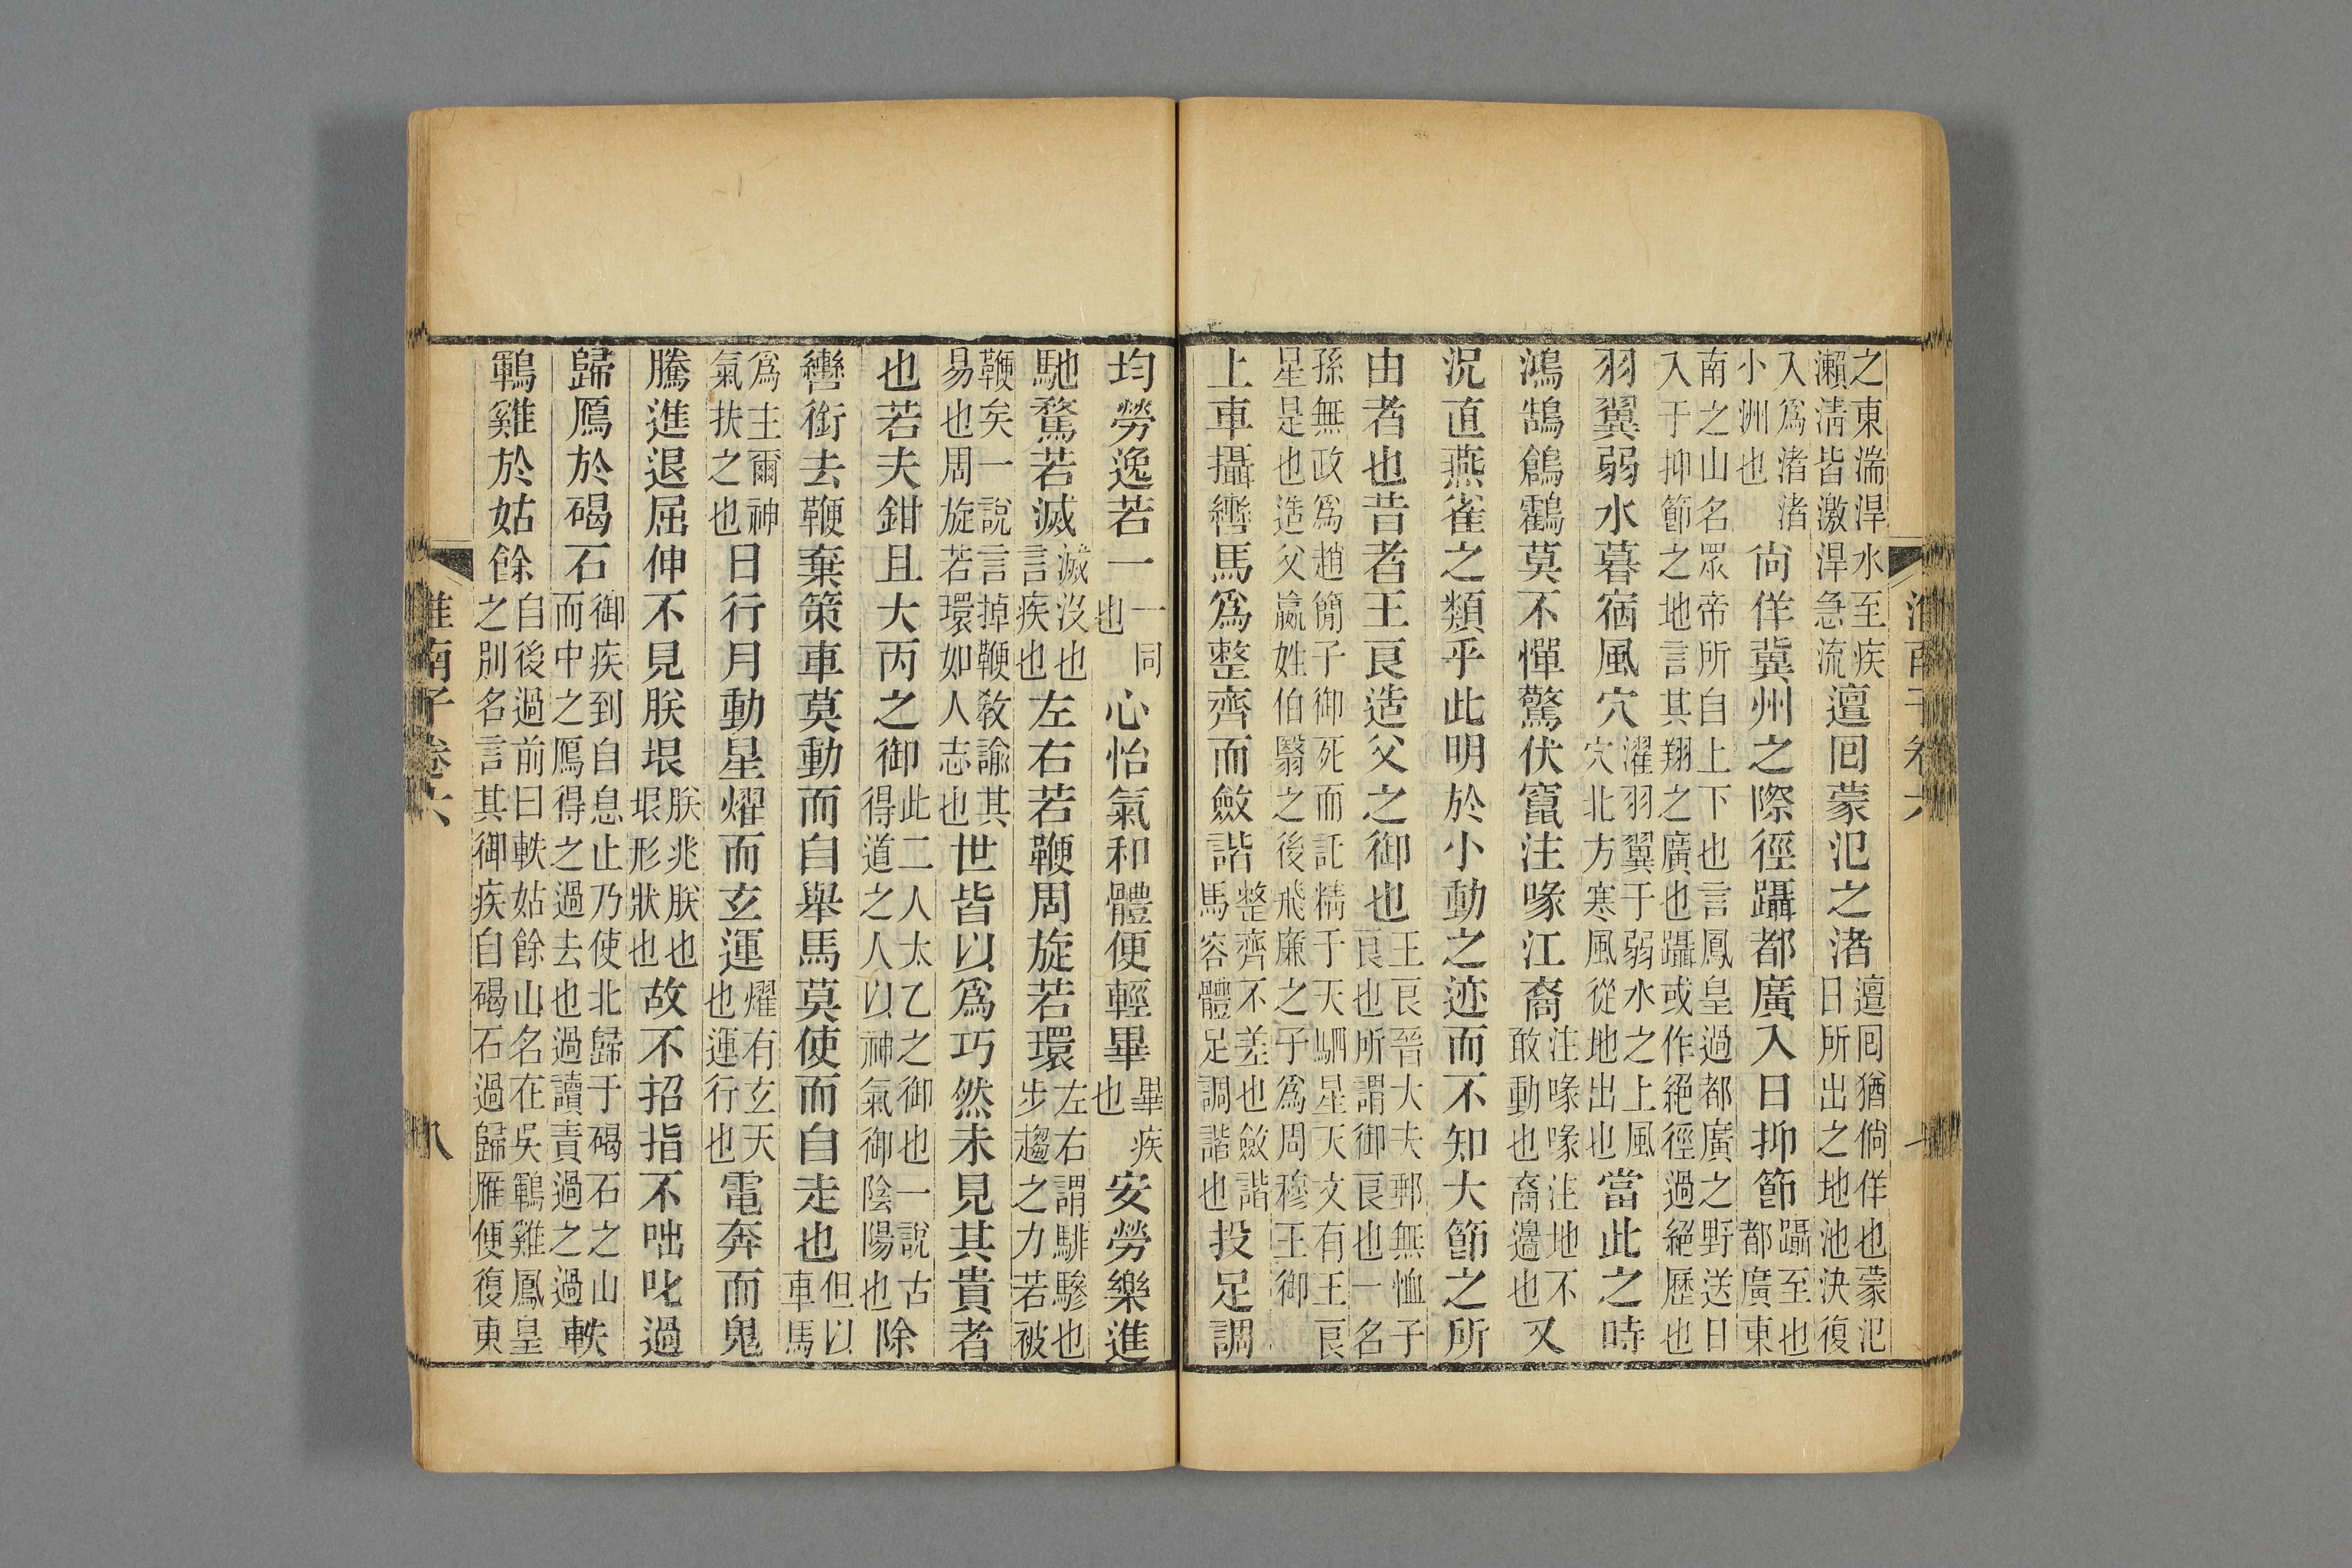 淮南子卷六
之東湍涆水至疾
瀨淸皆激涆急流
邅囘蒙汜之渚
邅囘猶倘佯也蒙汜
日所出之地池決復
入爲渚渚
小洲也
尙佯冀州之際徑躡都廣入日抑節
躡至也
都廣東
南之山名眾帝所自上下也言鳳皇過都廣之野送日
入于抑節之地言其翔之廣也躡或作絕徑過絕歷也
羽翼弱水暮宿風穴
濯羽翼于弱水之上風
穴北方寒風從地出也
當此之時
鴻鵠鶬鸖莫不憚驚伏竄注喙江裔
注喙喙注地不
敢動也裔邊也
又
況直燕雀之類乎此明於小動之迹而不知大節之所
由者也昔者王良造父之御也
王良晉大夫郵無恤子
良也所謂御良也一名
孫無政爲趙簡子御死而託精于天駟星天文有王良
星是也造父嬴姓伯翳之後飛廉之子爲周穆王御
上車攝轡馬爲整齊而斂諧
整齊不差也斂諧
馬容體足調諧也
投足調
均勞逸若一
一同
也
心怡氣和體便輕畢
畢疾
也
安勞樂進
馳騖若滅
滅沒也
言疾也
左右若鞭周旋若環
左右謂騑驂也
步趨之力若被
鞭矣一說言掉鞭敎諭其
易也周旋若環如人志也
世皆以爲巧然未見其貴者
也若夫鉗且大丙之御
此二人太乙之御也一說古
得道之人以神氣御陰陽也
除
轡銜去鞭棄策車莫動而自舉馬莫使而自走也
但以
車馬
爲主爾神
氣扶之也
日行月動星燿而玄運
燿有玄天
也運行也
電奔而鬼
騰進退屈伸不見朕垠
朕兆朕也
垠形狀也
故不招指不咄叱過
歸鴈於碣石
御疾到自息止乃使北歸于碣石之山
而中之鴈得之過去也過讀責過之過
軼
鶤雞於姑餘
自後過前曰軼姑餘山名在吳鶤雞鳳皇
之別名言其御疾自碣石過歸雁便復東
淮南子卷六
八